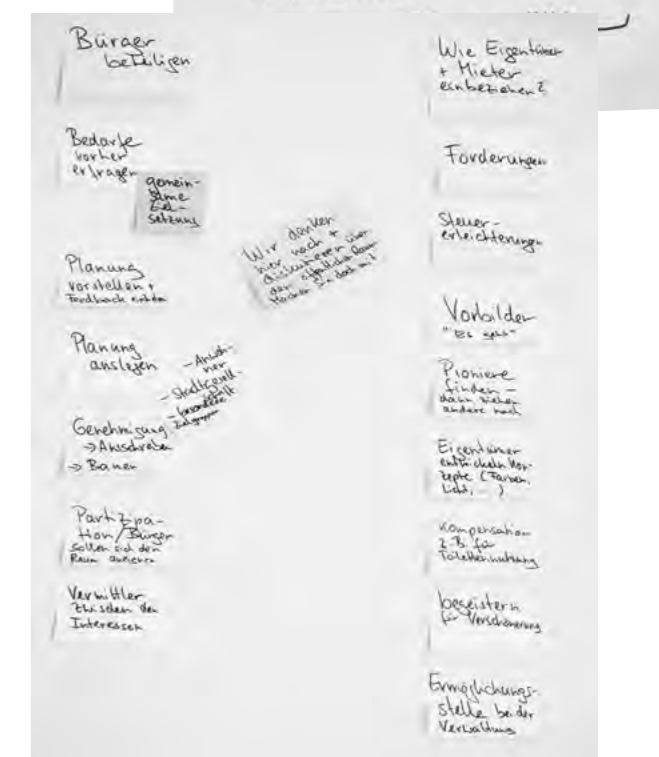 Bürger
beteiligen
Bedarfe
vorher
erfragen
gemein-
same
Ziel-
setzung
Planung
vorstellen +
Feedback
Planung
auslegen
- Anwoh-
ner
- Stadtgesell-
schaft
- besondere
Zielgruppen
Genehmigung
→ Ausschreiben
→ Bauen
Partizipa-
tion/Bürger
sollen sich den
Raum aneignen
Vermittler
zwischen den
Interessen
Wir denken
hier nach +
diskutieren über
den öffentlichen Raum
Machen Sie doch mit
Wie Eigentümer
+ Mieter
einbeziehen?
Förderungen
Steuer-
erleichterungen
Vorbilder
"Es geht"
Pioniere
finden –
dann ziehen
andere nach
Eigentümer
entwickeln Kon-
zepte (Farben,
Licht, ... )
Kompensation
z.B. für
Toilettennutzung
begeistern
für Verschönerung
Ermöglichungs-
stelle bei der
Verwaltung